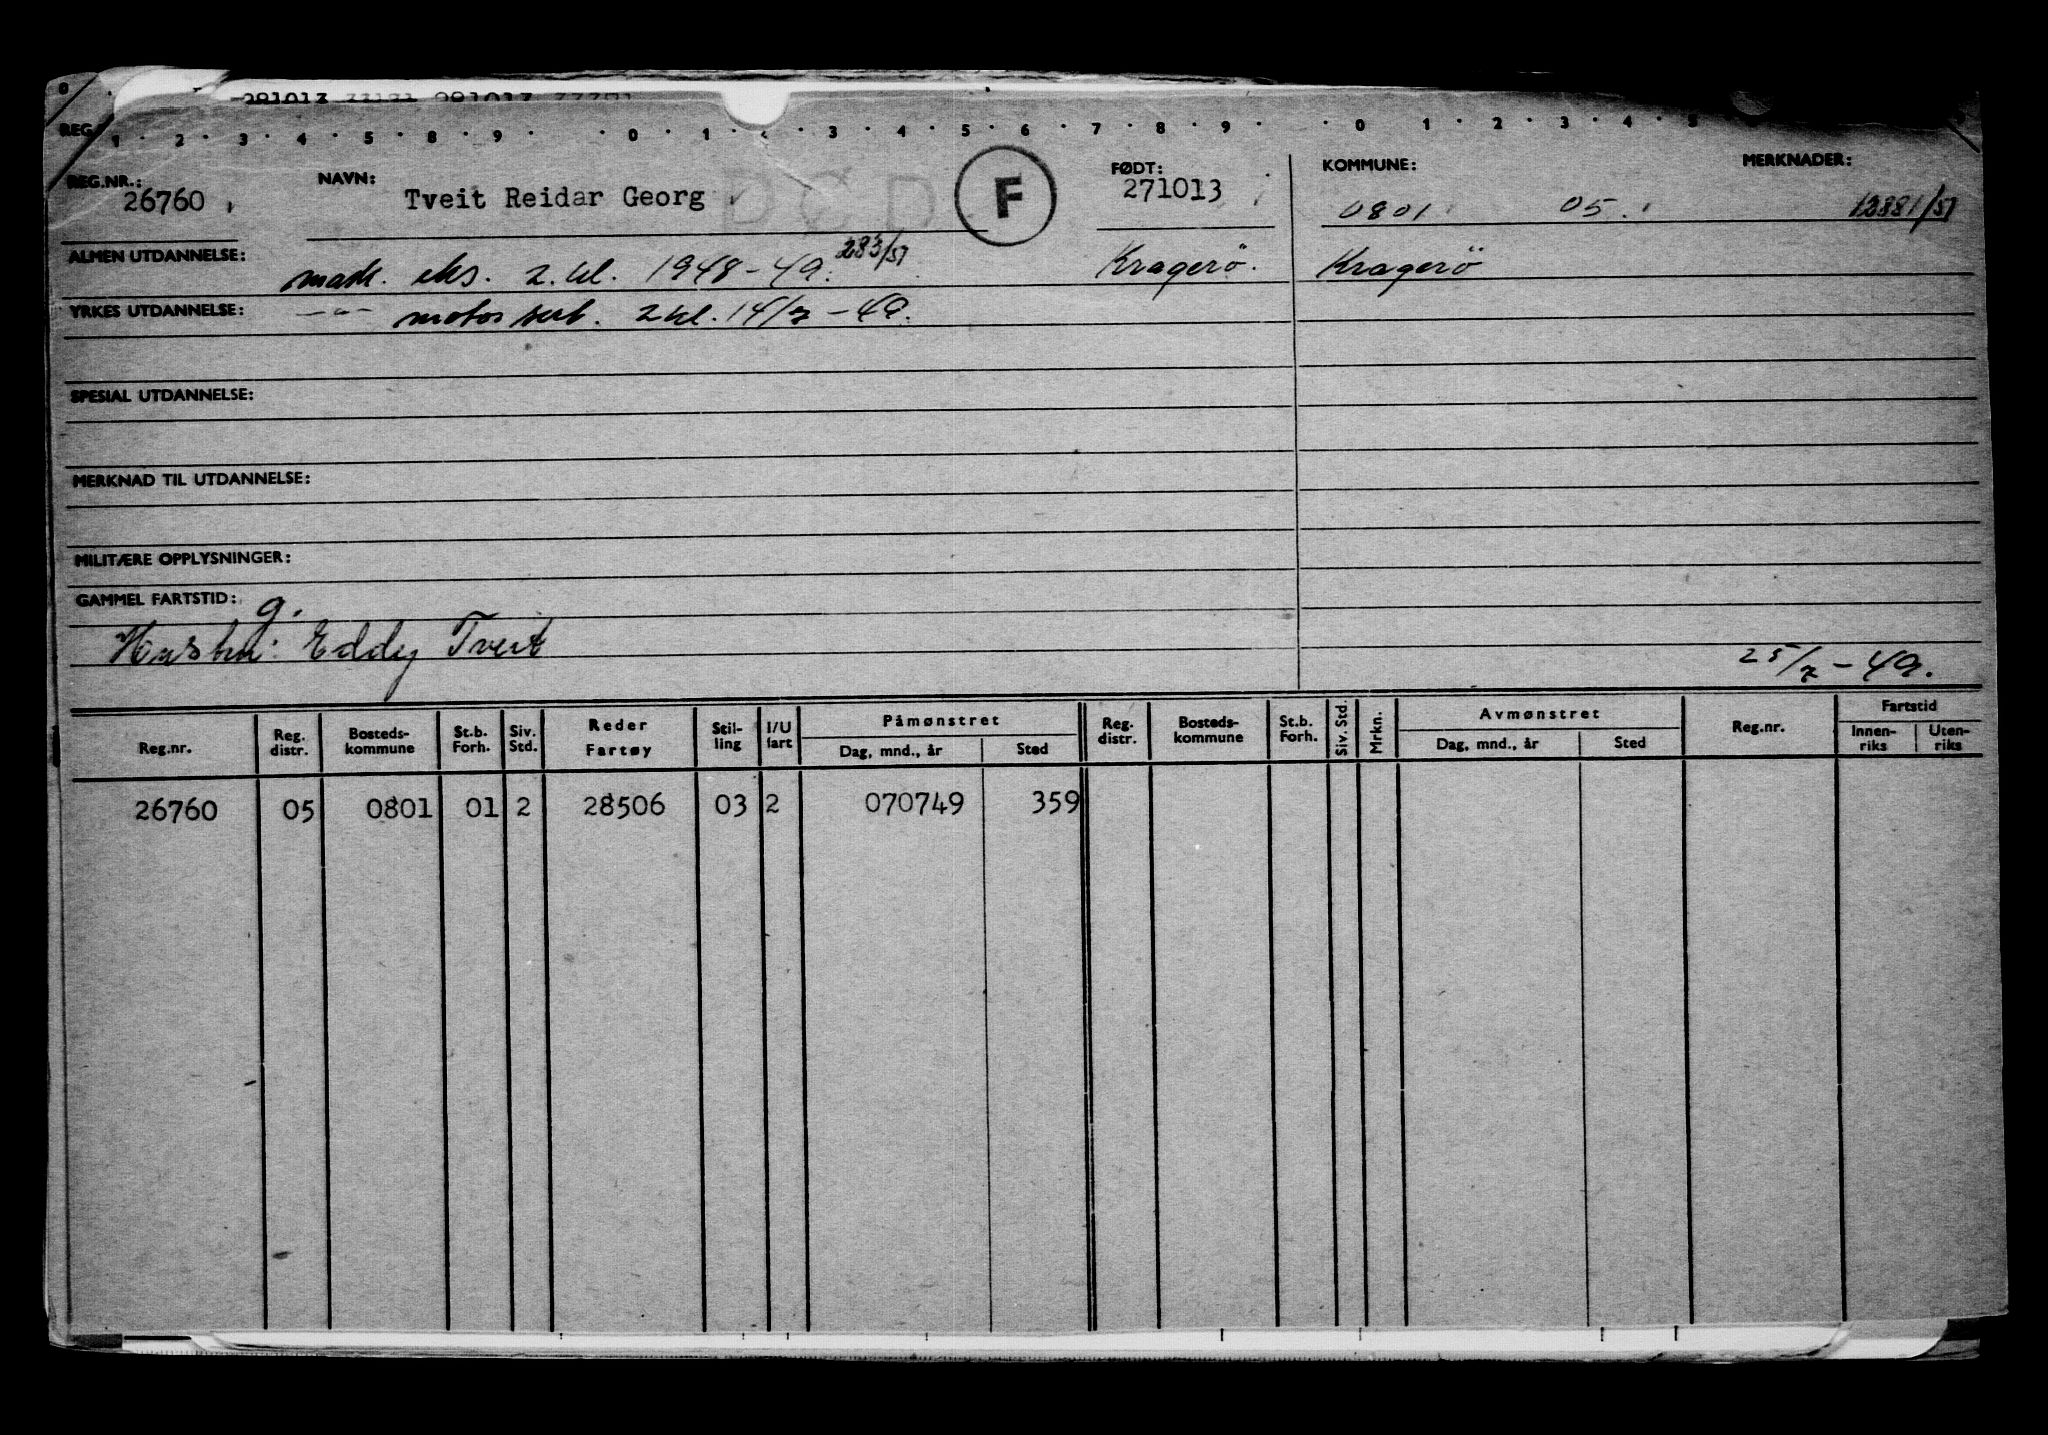 REG.
0 1 · 2 · 3 · 4 · 5 · 8 · 9 · 0 · 1 · 2 · 3 · 4 · 5 · 6 · 7 · 8 · 9 · 0 1 · 2 · 3 · 4 · 5
REG.NR.: NAVN: FØDT: KOMMUNE: MERKNADER:
26760 Tveit Reidar Georg DØD F 271013 0801 05. 12881/51
ALMEN UTDANNELSE: mask. eks. 2. kl. 1948-49. 283/51 Kragerö. Kragerö
YRKES UTDANNELSE: —"— motor sert. 2 kl. 14/7-49.
SPESIAL UTDANNELSE:
MERKNAD TIL UTDANNELSE:
MILITÆRE OPPLYSNINGER:
GAMMEL FARTSTID: g.
Hustru: Eddy Tveit 25/7-49.
Reg.nr. Reg. distr. Bosteds-kommune St.b. Forh. Siv. Std. Reder Fartøy Stil-ling I/U fart Påmønstret Dag, mnd., år Sted Reg. distr. Bosteds-kommune St.b. Forh. Siv. Std. Mrkn. Avmønstret Dag, mnd., år Sted Reg.nr. Fartstid Innen-riks Uten-riks
26760 05 0801 01 2 28506 03 2 070749 359